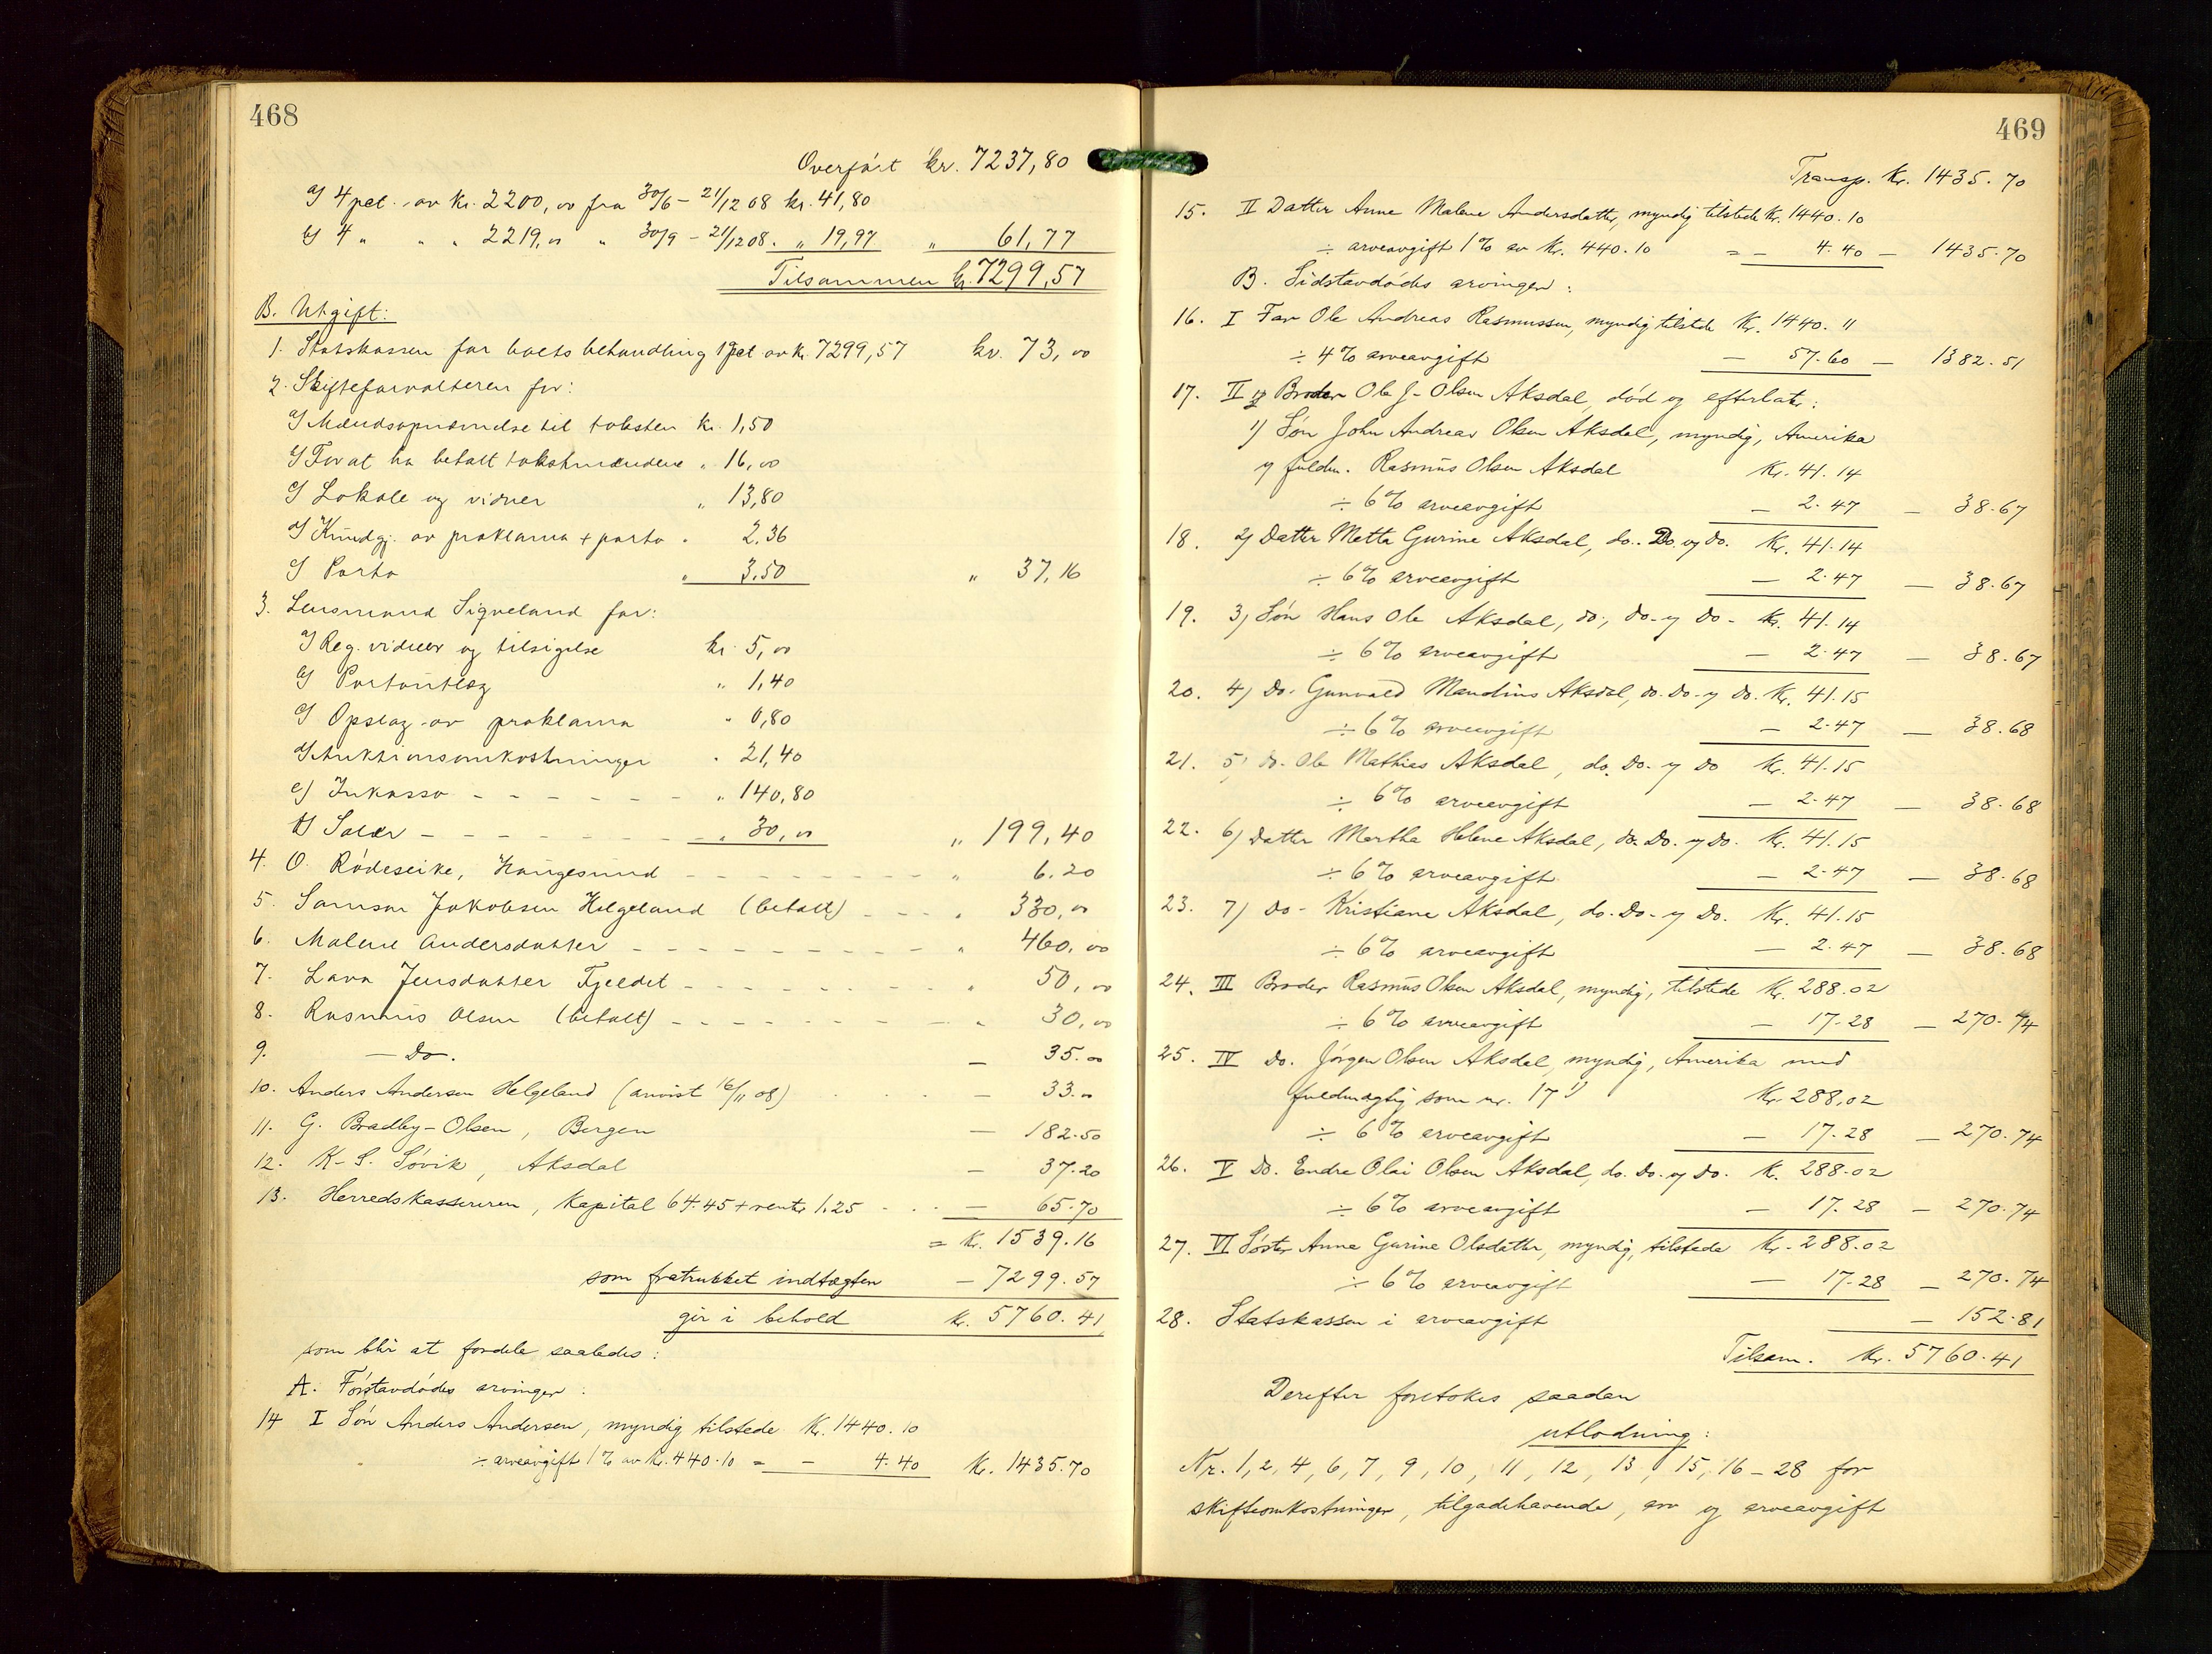 468
Overført kr. 7237,80
a) 4 pct. av kr. 2200,00 fra 30/6 - 21/12 08 kr. 41,80
b) 4 " " " 2219,00 " 30/9 - 21/12 08. " 19,97 " 61,77
Tilsammen kr. 7299,57
B. Utgift:
1. Statskassen for boets behandling 1 pct av kr. 7299,57 kr. 73,00
2. Skifteforvalteren for:
a) Mændsopnævnelse til taksten kr. 1,50
b) For at ha betalt takstmændene " 16,00
c) Lokale og vidner " 13,80
d) Kundgj. av proklama + porto " 2,36
e) Porto " 3.50 " 37,16
3. Lensmand Sigveland for:
a) Reg. vidner og tilsigelse kr. 5,00
b) Portoutlæg " 1,40
c) Opslag av proklama " 0,80
d) Auktionsomkostninger " 21,40
e) Inkasso - - - - - - " 140,80
f) Salær - - - - - - - " 30,00 " 199,40
4. O. Rødeseike, Haugesund - - - - - - - - " 6.20
5. Samson Jakobsen Helgeland (betalt) - - - " 330,00
6. Malene Andersdatter - - - - - - - - - " 460,00
7. Lava Jensdatter Fjeldet - - - - - - - - " 50,00
8. Rasmus Olsen (betalt) - - - - - - - - " 30,00
9. — Do. — 35.00
10. Anders Andersen Helgeland (anvist 16/11 08) . . . — 33.00
11. G. Bradby-Olsen, Bergen — 182.50
12. K. S. Søvik, Aksdal — 37.20
13. Herredskassereren, kapital 64.45 + renter 1.25 . . . — 65.70
= Kr. 1539.16
som fratrukket indtægten — 7299.57
gir i behold kr. 5760.41
som blir at fordele saaledes:
A. Førstavdødes arvinger:
14 I Søn Anders Andersen, myndig tilstede Kr. 1440.10
÷ arveavgift 1% av Kr. 440.10 = — 4.40 Kr. 1435.70
469
Transp. Kr. 1435.70
15. II Datter Anne Malene Andersdatter, myndig tilstede Kr. 1440.10
÷ arveavgift 1% av Kr. 440.10 = — 4.40 — 1435.70
B. Sidstavdødes arvinger:
16. I Far Ole Andreas Rasmussen, myndig tilstede Kr. 1440. "
÷ 4% arveavgift — 57.60 — 1382.51
17. II Broder Ole J. Olsen Aksdal, død og efterlater:
1) Søn John Andreas Olsen Aksdal, myndig, Amerika
og fuldm. Rasmus Olsen Aksdal Kr. 41.14
÷ 6% arveavgift — 2.47 — 38.67
18. 2) Datter Metta Gurine Aksdal, do. Do. og Do. Kr. 41.14
÷ 6% arveavgift — 2.47 — 38.67
19. 3) Søn Hans Ole Aksdal, do., do. og Do. Kr. 41.14
÷ 6% arveavgift — 2.47 — 38.67
20. 4) Do. Gunvald Maudius Aksdal, do. Do. og Do. Kr. 41.15
÷ 6% arveavgift — 2.47 — 38.68
21. 5) do. Ole Mathias Aksdal, do. Do. og Do Kr. 41.15
÷ 6% arveavgift — 2.47 — 38.68
22. 6) Datter Martha Helene Aksdal, do. Do. og Do. Kr. 41.15
÷ 6% arveavgift — 2.47 — 38.68
23. 7) Do. Kristiane Aksdal, do. Do. og Do. Kr. 41.15
÷ 6% arveavgift — 2.47 — 38.68
24. III Broder Rasmus Olsen Aksdal, myndig, tilstede Kr. 288.02
÷ 6% arveavgift — 17.28 — 270.74
25. IV Do. Jørgen Olsen Aksdal, myndig, Amerika med
fuldmægtig som nr. 17 1) Kr. 288,02
÷ 6% arveavgift — 17.28 — 270.74
26. V Do. Endre Olai Olsen Aksdal, do. Do. og Do. K. 288.02
÷ 6% arveavgift — 17.28 — 270.74
27. VI Søster Anne Gurine Olsdatter, myndig, tilstede Kr. 288.02
÷ 6% arveavgift — 17.28 — 270.74
28. Statskassen i arveavgift — 152.81
Tilsam. Kr. 5760.41
Derefter foretokes saadan
utlodning:
Nr. 1, 2, 4, 6, 7, 9, 10, 11, 12, 13, 15, 16 - 28 for
skifteomkostninger, tilgodehavende, arv og arveavgift